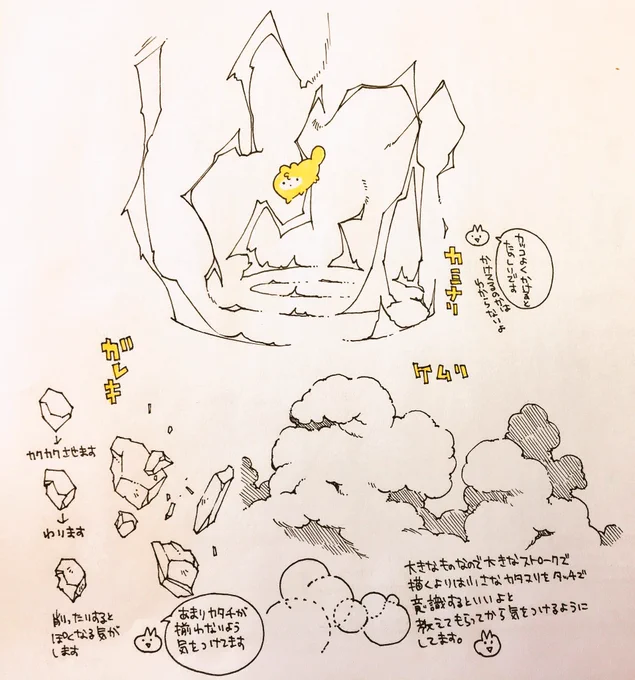 カミナリ
カッコよくかけると
たのしいです
かけてるのかは
わからないよ
ガレキ
カクカクさせます
わります
削ったりすると
ぽくなる気が
します
あまりカタチが
揃わないよう
気をつけてます
ケムリ
大きなものなので大きなストロークで
描くよりは小さなカタマリをタッチで
意識するといいよと
教えてもらってから気をつけるように
してます。